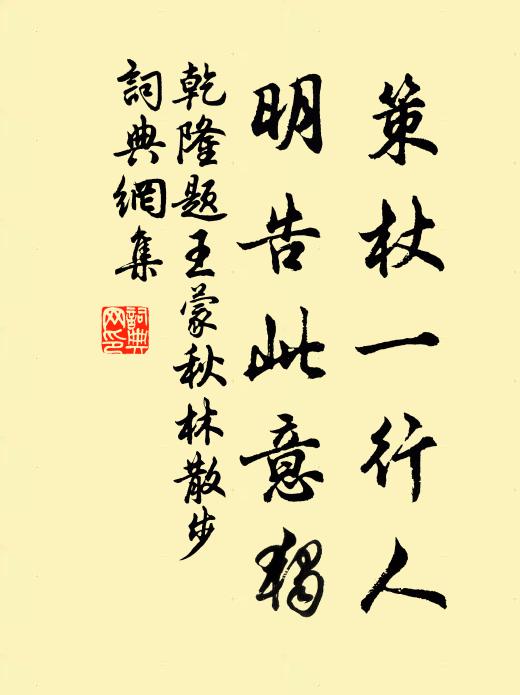 策杖一行人
明告此意獨
乾隆題王蒙秋林散步
詞典網集
詞典
网印